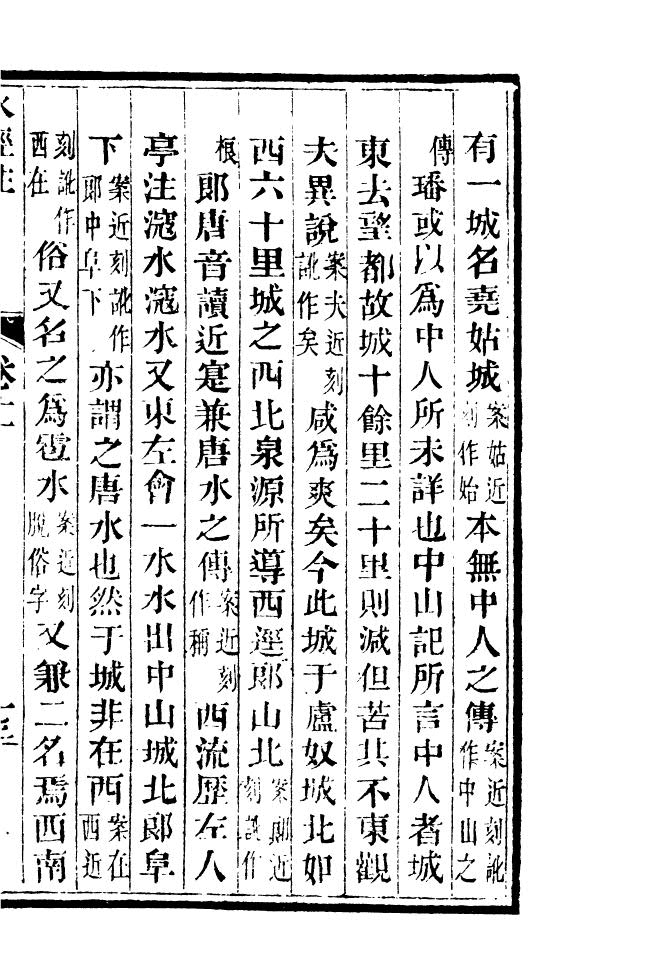 有一城名堯姑城案姑近刻作始本無中人之傳案近刻訛作中山之
傳璠或以爲中人所未詳也中山記所言中人者城
東去望都故城十餘里二十里則減但苦其不東觀
夫異說案夫近刻訛作矣咸爲爽矣今此城于盧奴城北如
西六十里城之西北泉源所導西逕郎山北案郎近刻訛作
根郎唐音讀近寔兼唐水之傳案近刻作稱西流歷左人
亭注滱水滱水又東左會一水水出中山城北郎阜
下案近刻訛作郎中阜下亦謂之唐水也然于城非在西案在西近
刻訛作西在俗又名之爲雹水案近刻脫俗字又兼二名焉西南
水經注 卷十一